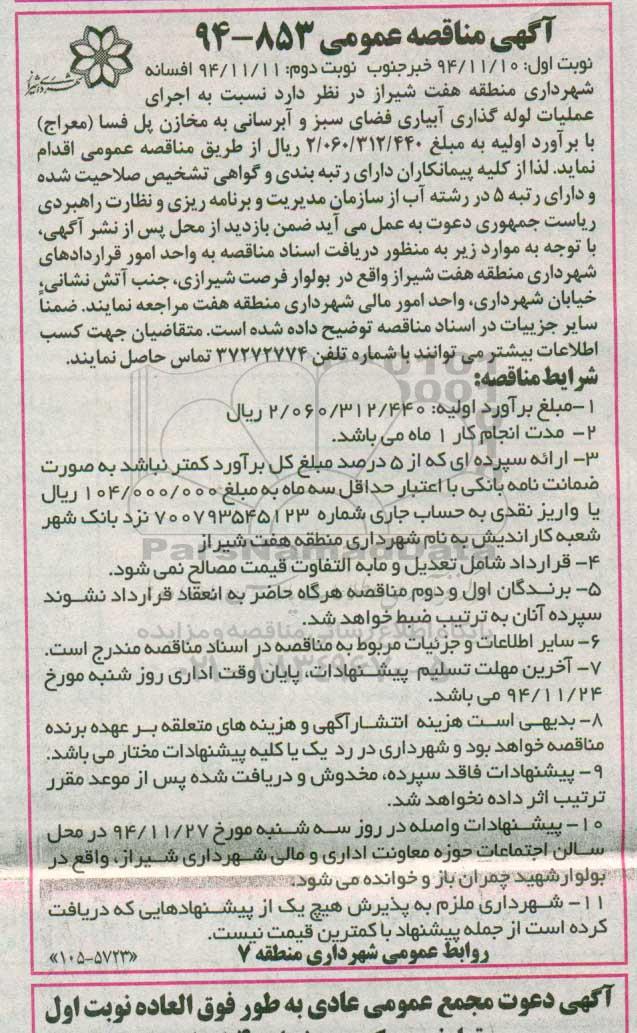 آگهی مناقصه عمومی ۸۵۳-۹۴
نوبت اول: ۹۴/۱۱/۱۰ خبرجنوب نوبت دوم: ۹۴/۱۱/۱۱ افسانه
شهرداری شیراز
شهرداری منطقه هفت شیراز در نظر دارد نسبت به اجرای
عملیات لوله گذاری آبیاری فضای سبز و آبرسانی به مخازن پل فسا (معراج)
با برآورد اولیه به مبلغ ۲/۰۶۰/۳۱۲/۴۴۰ ریال از طریق مناقصه عمومی اقدام
نماید. لذا از کلیه پیمانکاران دارای رتبه بندی و گواهی تشخیص صلاحیت شده
و دارای رتبه ۵ در رشته آب از سازمان مدیریت و برنامه ریزی و نظارت راهبردی
ریاست جمهوری دعوت به عمل می آید ضمن بازدید از محل پس از نشر آگهی،
با توجه به موارد زیر به منظور دریافت اسناد مناقصه به واحد امور قراردادهای
شهرداری منطقه هفت شیراز واقع در بولوار فرصت شیرازی، جنب آتش نشانی،
خیابان شهرداری، واحد امور مالی شهرداری منطقه هفت مراجعه نمایند. ضمناً
سایر جزییات در اسناد مناقصه توضیح داده شده است. متقاضیان جهت کسب
اطلاعات بیشتر می توانند با شماره تلفن ۳۷۲۷۲۷۷۴ تماس حاصل نمایند.
شرایط مناقصه:
۱-مبلغ برآورد اولیه: ۲/۰۶۰/۳۱۲/۴۴۰ ریال
۲- مدت انجام کار ۱ ماه می باشد.
۳- ارائه سپرده ای که از ۵ درصد مبلغ کل برآورد کمتر نباشد به صورت
ضمانت نامه بانکی با اعتبار حداقل سه ماه به مبلغ ۱۰۴/۰۰۰/۰۰۰ ریال
یا واریز نقدی به حساب جاری شماره ۷۰۰۷۹۳۵۴۵۱۲۳ نزد بانک شهر
شعبه کاراندیش به نام شهرداری منطقه هفت شیراز
۴- قرارداد شامل تعدیل و مابه التفاوت قیمت مصالح نمی شود.
۵- برندگان اول و دوم مناقصه هرگاه حاضر به انعقاد قرارداد نشوند
سپرده آنان به ترتیب ضبط خواهد شد.
۶- سایر اطلاعات و جزئیات مربوط به مناقصه در اسناد مناقصه مندرج است.
۷- آخرین مهلت تسلیم پیشنهادات، پایان وقت اداری روز شنبه مورخ
۹۴/۱۱/۲۴ می باشد.
۸- بدیهی است هزینه انتشارآگهی و هزینه های متعلقه بر عهده برنده
مناقصه خواهد بود و شهرداری در رد یک یا کلیه پیشنهادات مختار می باشد.
۹- پیشنهادات فاقد سپرده، مخدوش و دریافت شده پس از موعد مقرر
ترتیب اثر داده نخواهد شد.
۱۰- پیشنهادات واصله در روز سه شنبه مورخ ۹۴/۱۱/۲۷ در محل
سالن اجتماعات حوزه معاونت اداری و مالی شهرداری شیراز، واقع در
بولوارشهید چمران باز و خوانده می شود.
۱۱- شهرداری ملزم به پذیرش هیچ یک از پیشنهادهایی که دریافت
کرده است از جمله پیشنهاد با کمترین قیمت نیست.
روابط عمومی شهرداری منطقه ۷
«۱۰۵-۵۷۲۳»
آگهی دعوت مجمع عمومی عادی به طور فوق العاده نوبت اول